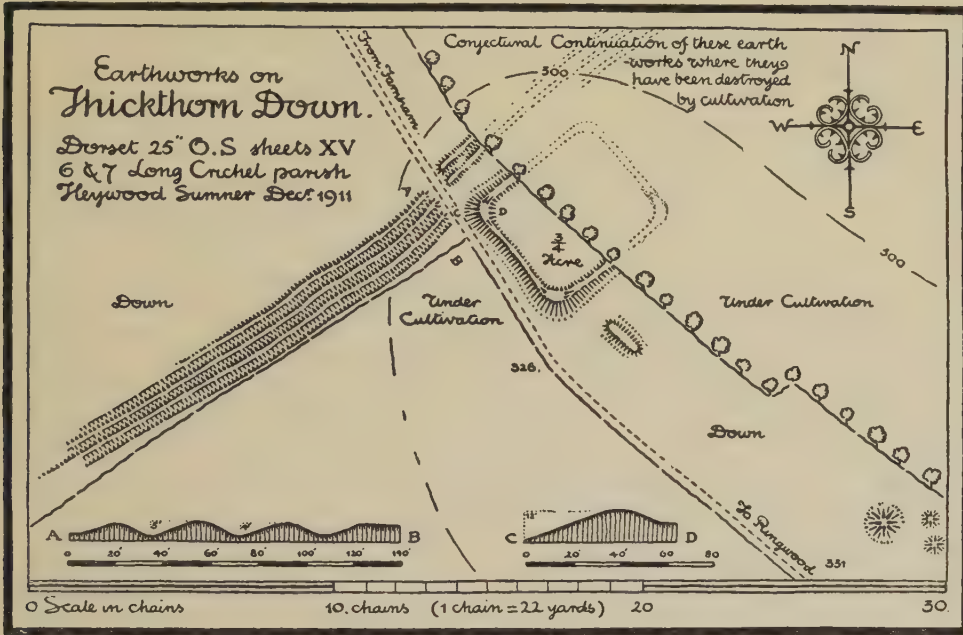 Earthworks on
Thickthorn Down.
Dorset 25" O.S sheets XV
6 & 7 Long Crichel parish
Heywood Sumner Decr. 1911
From Farnham
Conjectural Continuation of these earth
works where they
have been destroyed
by cultivation
300
N
W E
S
A
D
B
3/4
Acre
300
Down
Under
Cultivation
Under Cultivation
326.
Down
To Ringwood
351
A 3' 4' B
0 20' 40' 60' 80' 100' 120' 140'
C D
0 20' 40' 60' 80
0 Scale in chains 10. chains (1 chain = 22 yards) 20 30.